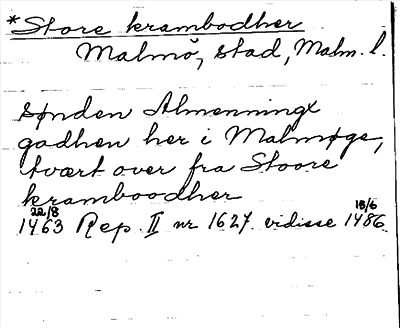 *Store krambodher
Malmö, stad, Malm. l.
synden Almenningx
gadhen her i Malmøge,
tvært over fra Stoore
kramboodher
22/8 15/6
1463 Rep. II nr 1627. vidisse 1486.